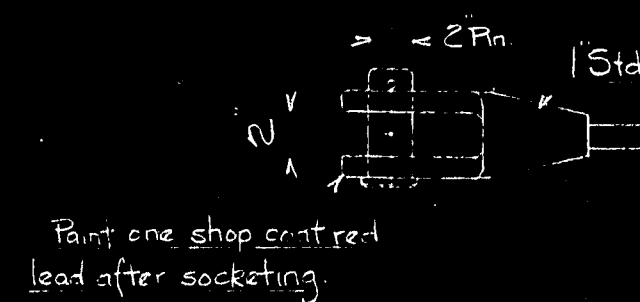 2" Pin.
1" Std
2"
Paint one shop coat red
lead after socketing.